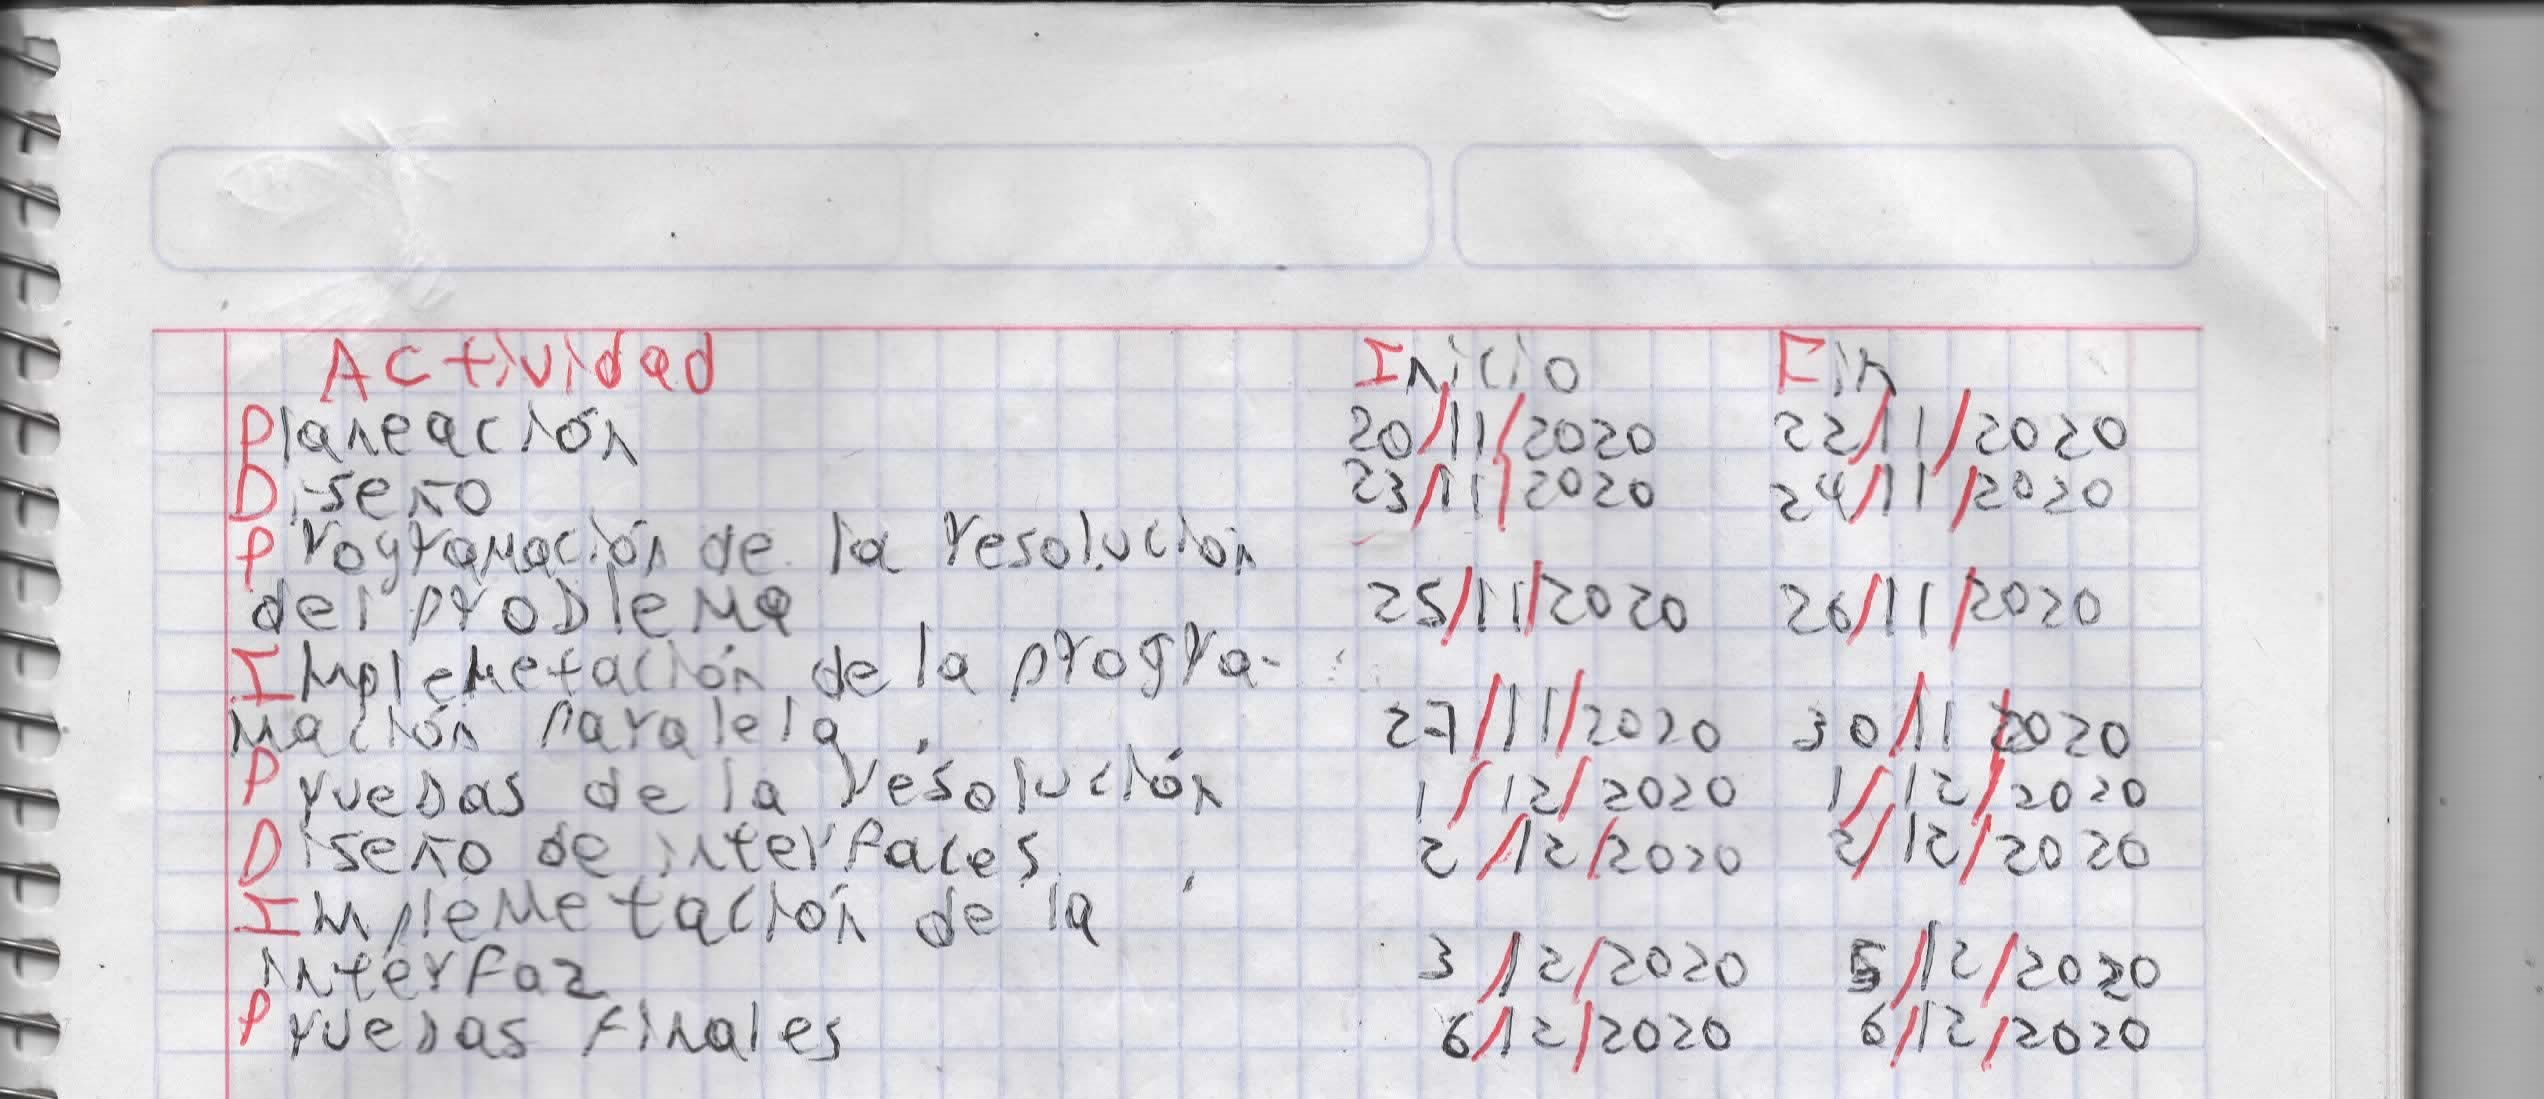 Actividad Inicio Fin
Planeación 20/11/2020 22/11/2020
Diseño 23/11/2020 24/11/2020
Programación de la resolución
del problema 25/11/2020 26/11/2020
Implemetación de la progra-
mación paralela 27/11/2020 30/11/2020
Pruebas de la resolución 1/12/2020 1/12/2020
Diseño de interfaces 2/12/2020 2/12/2020
Implemetación de la
interfaz 3/12/2020 5/12/2020
Pruebas finales 6/12/2020 6/12/2020